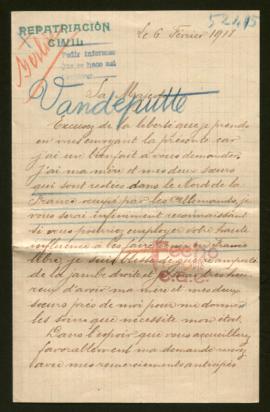 52415
REPATRIACIÓN
CIVIL
Le 6 Février 1918
Pedir informes
que se hace mal
Sa Majesté
Vandeputte
Excusez de la liberté que je prends
en vous envoyant la présente car
j'ai un bienfait à vous demander
j'ai ma mère et mes deux sœurs
qui sont restées dans le Nord de la
France occupé par les Allemands, je
vous serai infiniment reconnaissant
si vous pouviez employer votre haute
influence à les faire venir en France
libre, je suis blessé de guerre amputé
de la jambe droite et je serai très heu
reux d'avoir ma mère et mes deux
sœurs près de moi pour me donner
les soins que nécessite mon état.
Dans l'espoir que vous accueillerez
favorablement ma demande recevez
avec mes remerciements anticipés